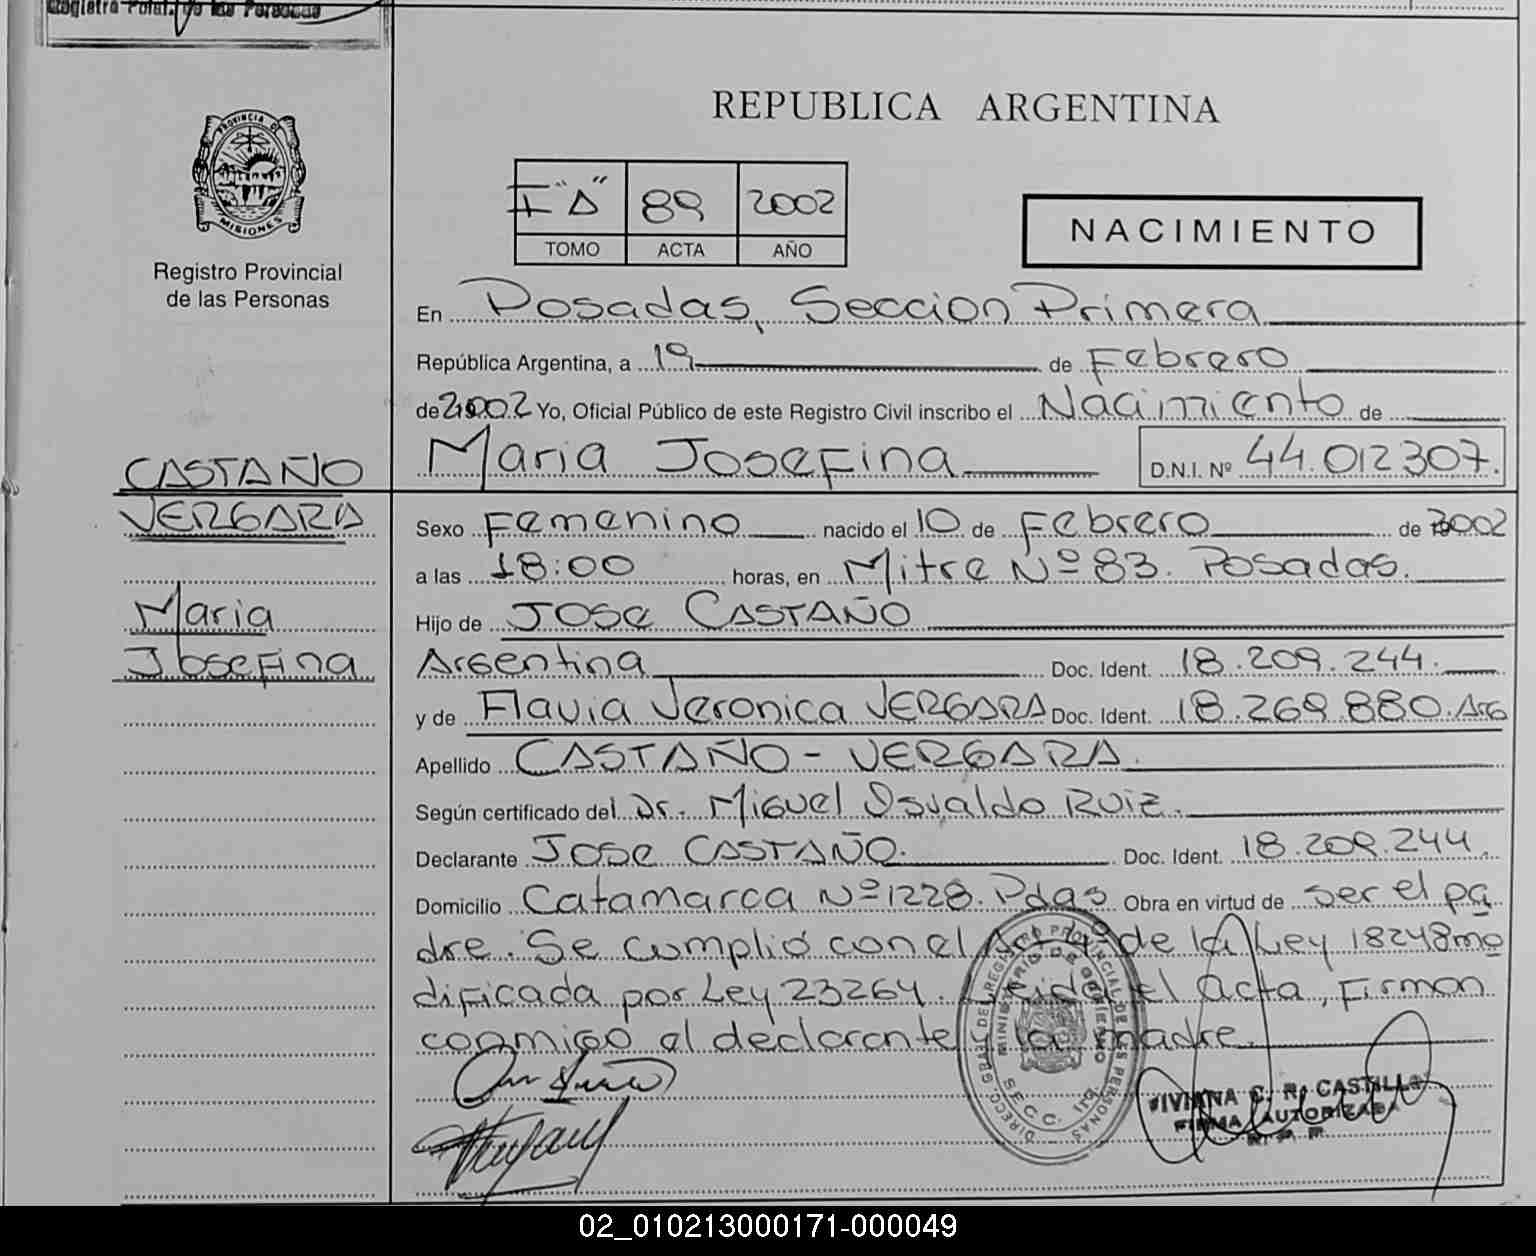 Registro Polal. de las Personas
PROVINCIA DE
MISIONES
Registro Provincial
de las Personas
REPUBLICA ARGENTINA
I "A" 89 2002
TOMO ACTA AÑO
NACIMIENTO
En Posadas, Seccion Primera
República Argentina, a 19 de Febrero
de 2002 Yo, Oficial Público de este Registro Civil inscribo el Nacimiento de
Maria Josefina D.N.I. Nº 44.012307.
CASTAÑO
VERGARA
Maria
Josefina
Sexo Femenino nacido el 10 de Febrero de 2002
a las 18:00 horas, en Mitre Nº 83. Posadas.
Hijo de Jose CASTAÑO
Argentina Doc. Ident. 18.209.244.
y de Flavia Veronica VERGARA Doc. Ident. 18.269.880. Arg
Apellido CASTAÑO - VERGARA.
Según certificado del Dr. Miguel Osvaldo Ruiz.
Declarante Jose CASTAÑO. Doc. Ident. 18.209.244.
Domicilio Catamarca Nº 1228. Pdas Obra en virtud de ser el pa
dre. Se cumplió con el de la Ley 18248 mo
dificada por Ley 23264. el acta, Firman
conmigo el declarante y la madre.
DIRECC. GRAL. DEL REGISTRO PROVINCIAL DE LAS PERSONAS
MINISTERIO DE GOBIERNO
SECC. 1ra.
VIVIANA C. R. CASTILLO
FIRMA AUTORIZADA
R P P
02_010213000171-000049